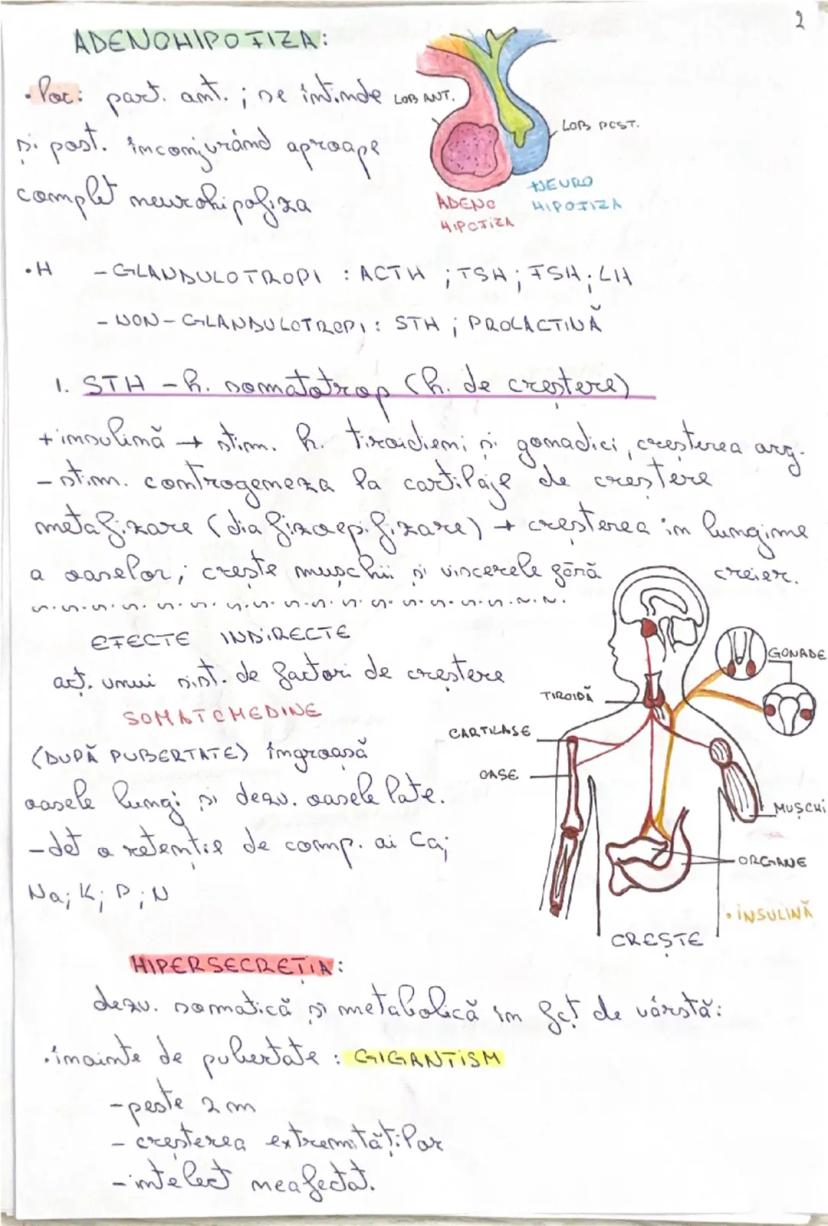 2
ADENOHIPOFIZA:
• Loc: part. ant.; se întinde
și post. înconjurând aproape
complet neurohipofiza
LOB ANT.
LOB POST.
ADENO
HIPOFIZA
NEURO
HIPOFIZA
• H - GLANDULOTROPI : ACTH ; TSH ; FSH ; LH
- NON-GLANDULOTROPI : STH ; PROLACTINĂ
1. STH - h. somatotrop (h. de creștere)
+ insulină → stim. h. tiroidieni și gonadici, creșterea org.
- stim. controgeneza la cartilaje de creștere
metafizare (diafizoepifizare) → creșterea în lungime
a oaselor; crește mușchii și viscerele fără creier.
EFECTE INDIRECTE
act. unui sist. de factori de creștere
SOMATOMEDINE
(DUPĂ PUBERTATE) îngroașă
oasele lungi și dezv. oasele late.
- det o retenție de comp. ai Ca;
Na; K; P; N
TIROIDĂ
GONADE
CARTILAJE
OASE
MUȘCHI
ORGANE
• INSULINĂ
CREȘTE
HIPERSECREȚIA:
dezv. somatică și metabolică în fcț de vârstă:
• înainte de pubertate : GIGANTISM
- peste 2 m
- creșterea extremităților
- intelect neafectat.